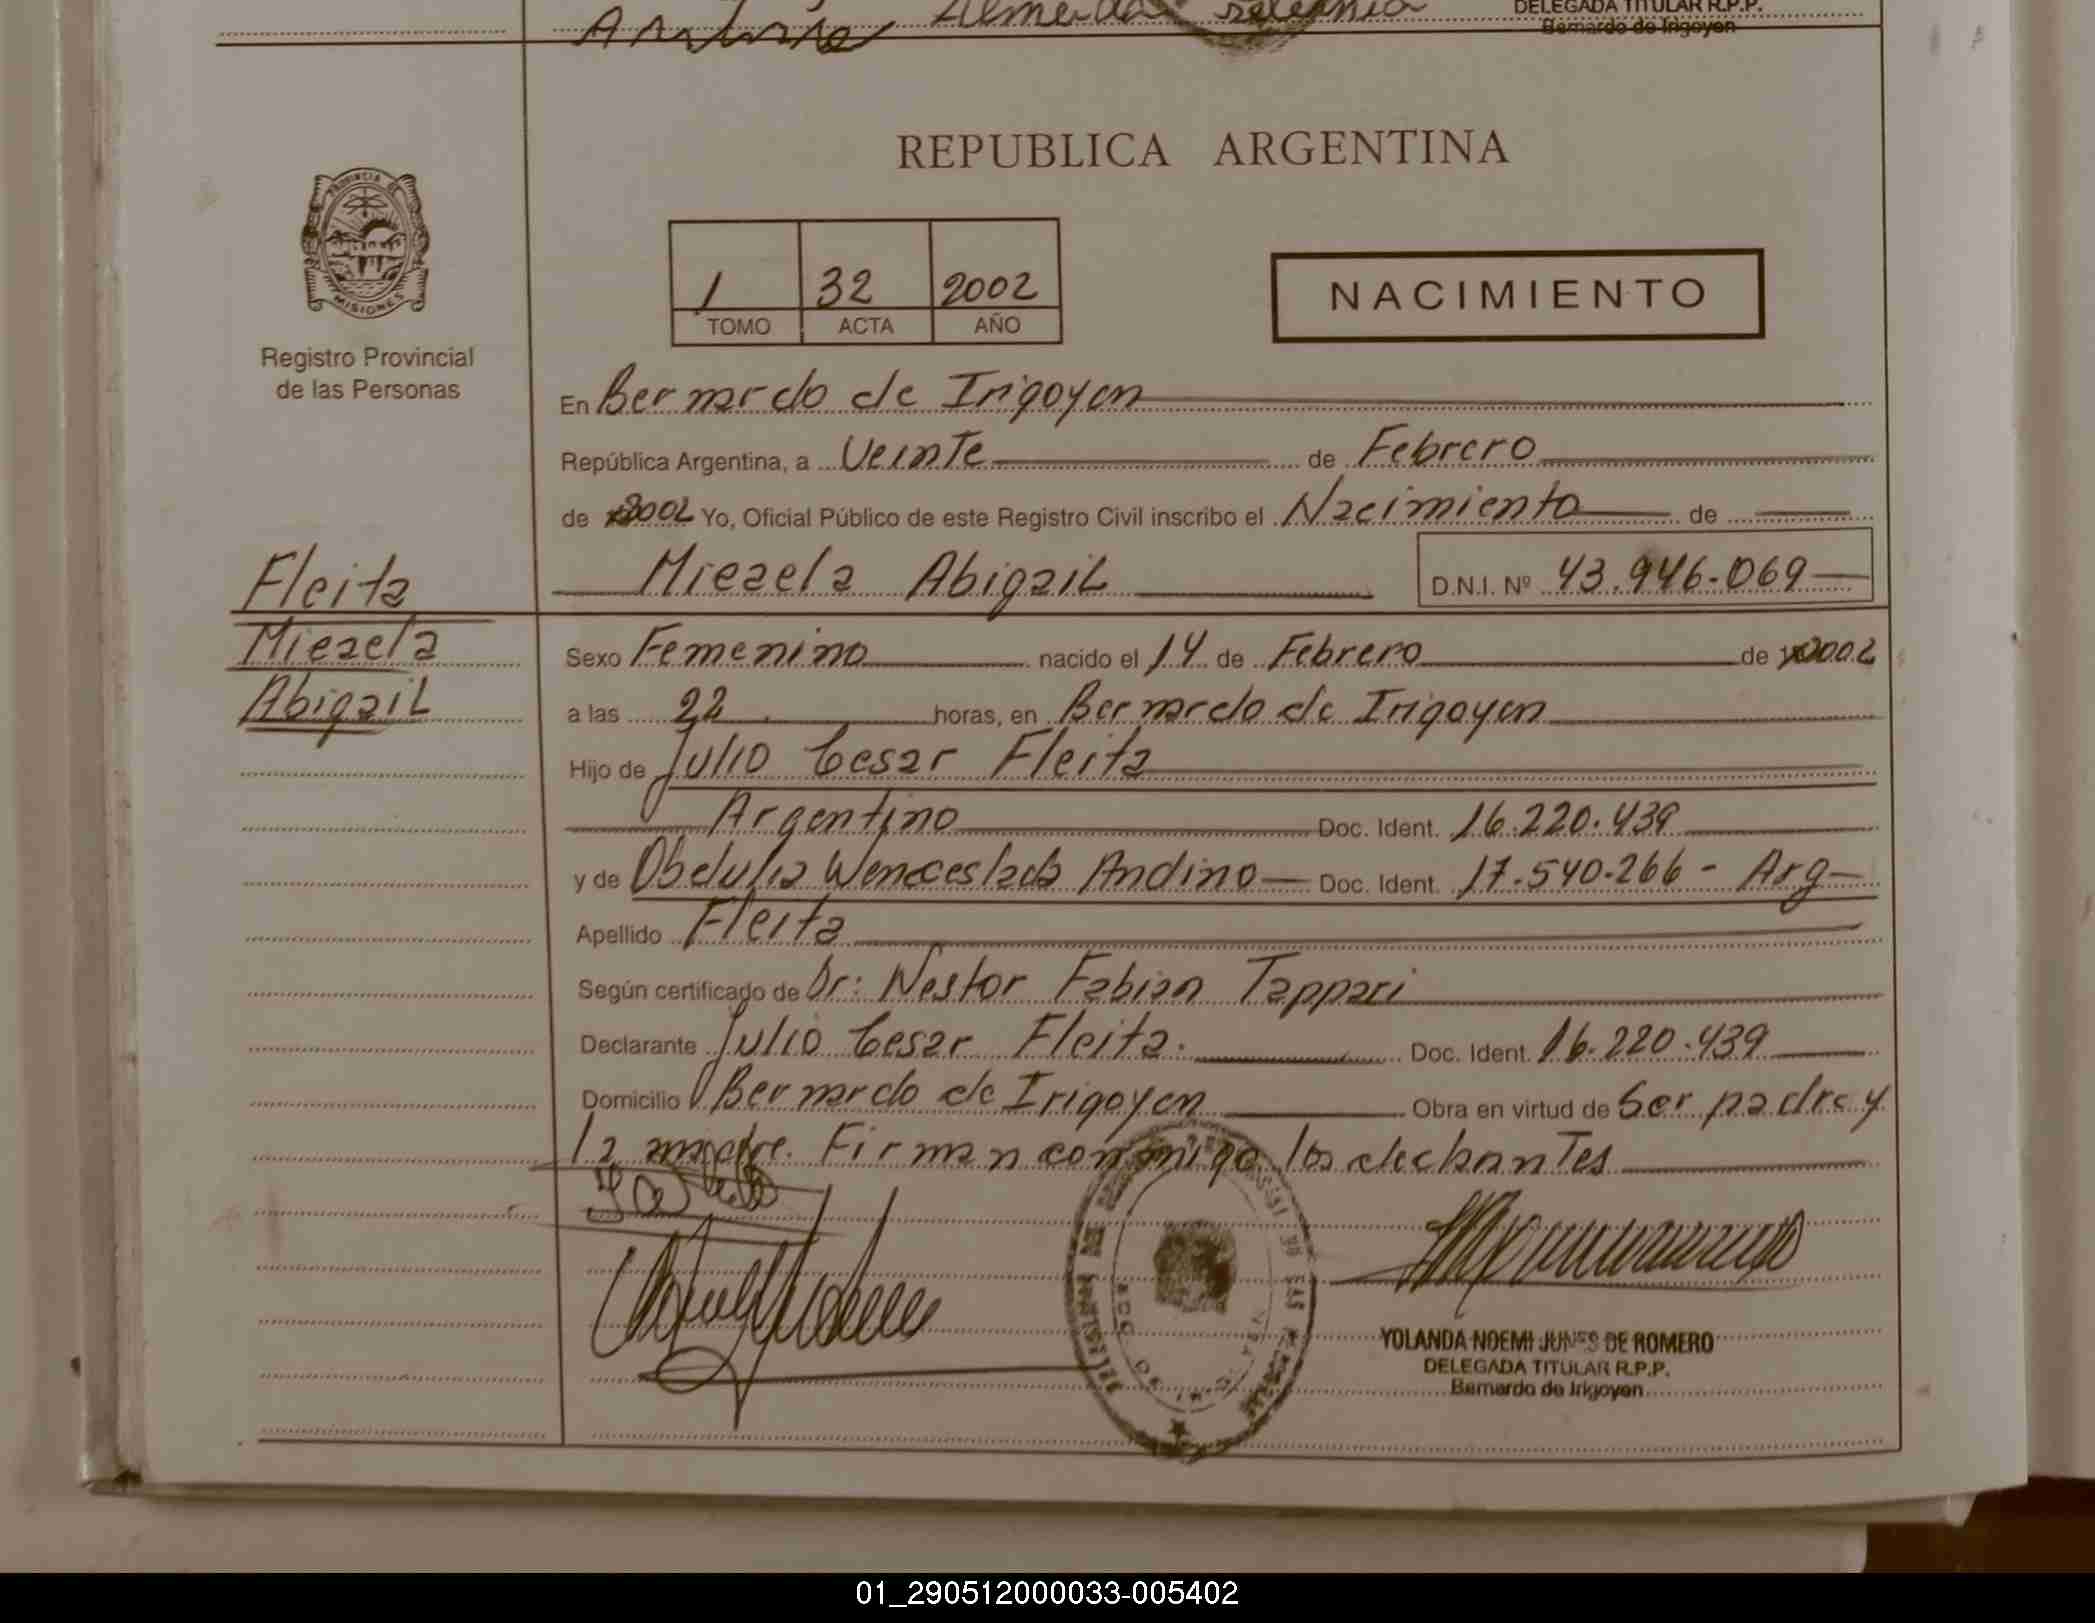 Almeida
DELEGADA TITULAR R.P.P.
Bernardo de Irigoyen
REPUBLICA ARGENTINA
PROVINCIA DE
MISIONES
Registro Provincial
de las Personas
1 32 2002
TOMO ACTA AÑO
NACIMIENTO
En Bernardo de Irigoyen
República Argentina, a Veinte de Febrero
de 2002 Yo, Oficial Público de este Registro Civil inscribo el Nacimiento de
Fleita
Micaela Abigail D.N.I. Nº 43.946.069
Micaela
Sexo Femenino nacido el 14 de Febrero de 2002
Abigail
a las 22 horas, en Bernardo de Irigoyen
Hijo de Julio Cesar Fleita
Argentino Doc. Ident. 16.220.439
y de Obdulia Wenceslada Andino Doc. Ident. 17.540.266 - Arg
Apellido Fleita
Según certificado de Dr: Nestor Fabian Tappari
Declarante Julio Cesar Fleita. Doc. Ident. 16.220.439
Domicilio Bernardo de Irigoyen Obra en virtud de Ser padre y
la madre. Firman conmigo los declarantes
YOLANDA NOEMI JUNES DE ROMERO
DELEGADA TITULAR R.P.P.
Bernardo de Irigoyen
01_290512000033-005402